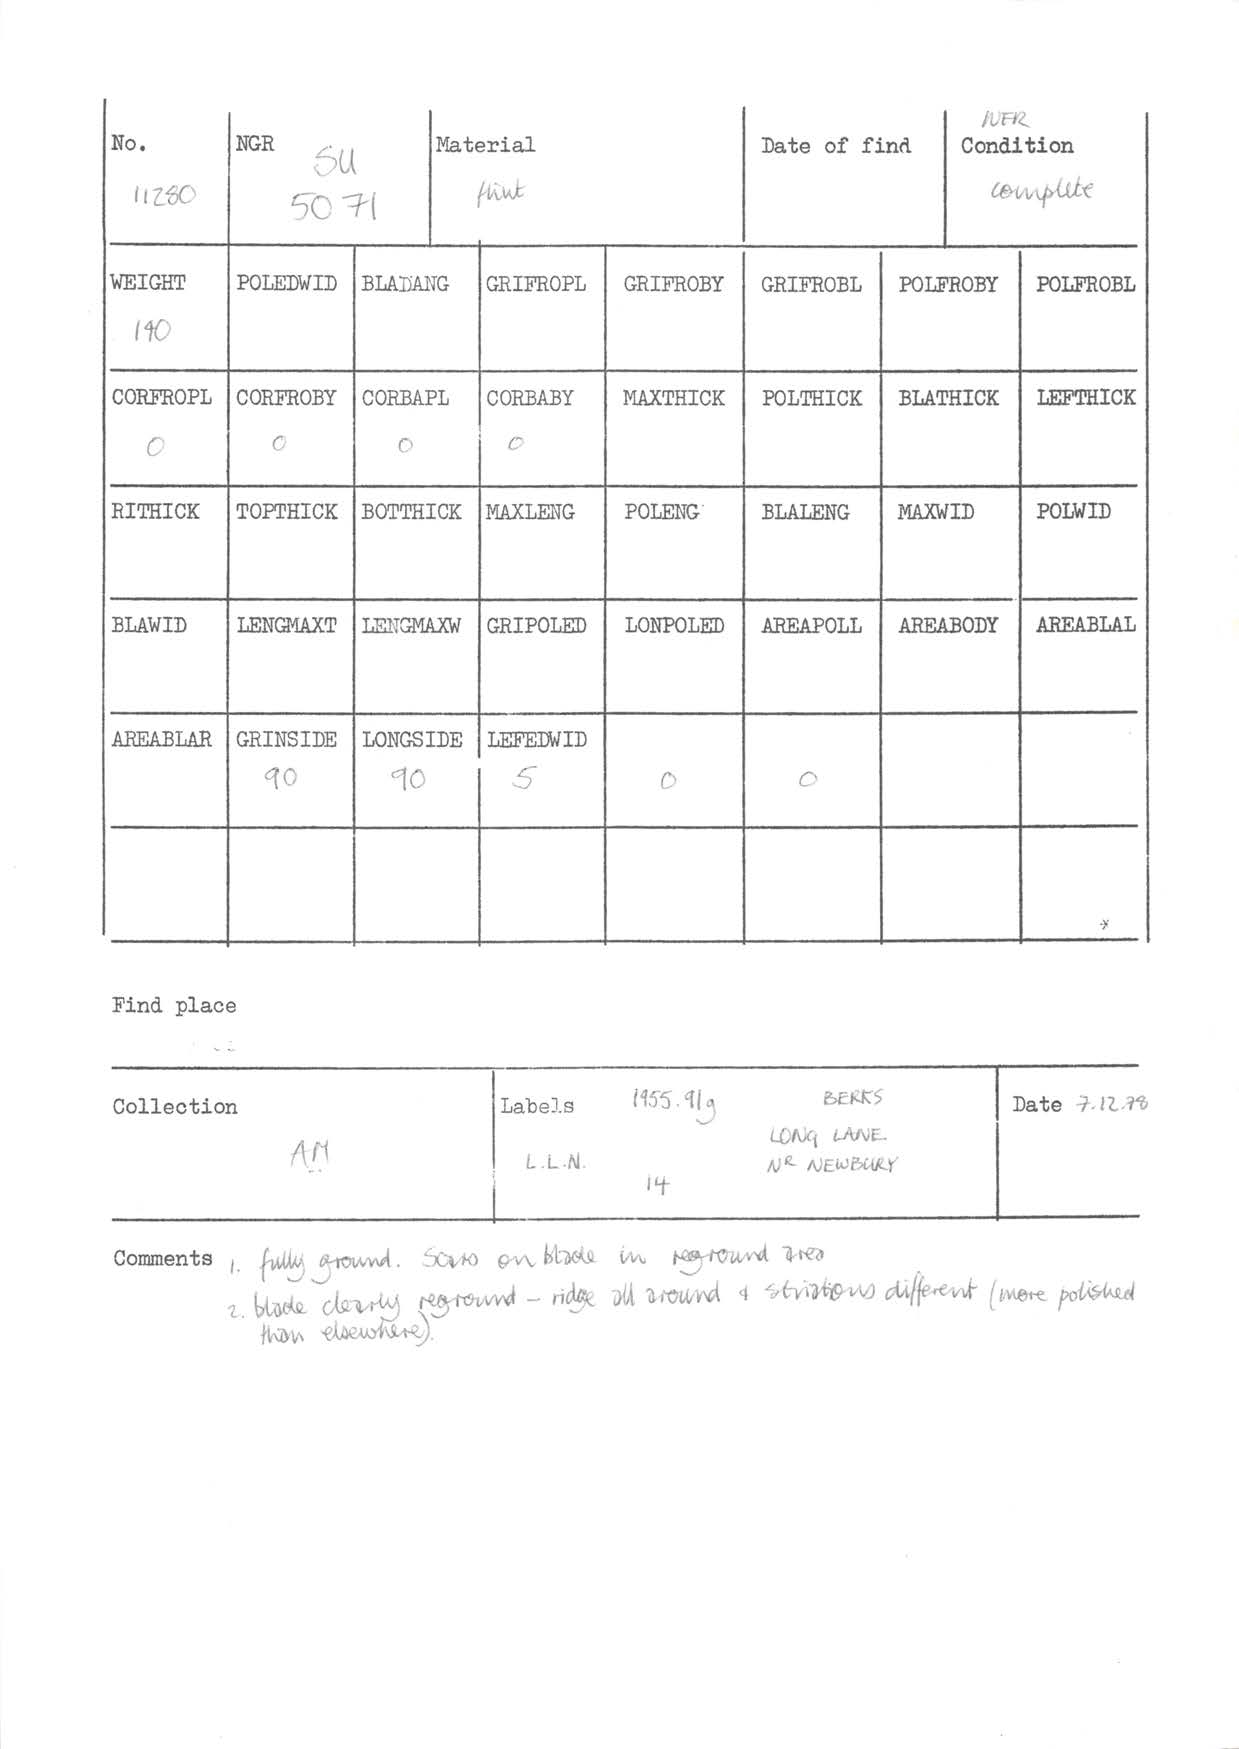 No. NGR Material Date of find Condition
SU
11280 50 71 flint complete
WEIGHT POLEDWID BLADANG GRIFROPL GRIFROBY GRIFROBL POLFROBY POLFROBL
190
CORFROPL CORFROBY CORBAPL CORBABY MAXTHICK POLTHICK BLATHICK LEFTHICK
0 0 0 0
RITHICK TOPTHICK BOTTHICK MAXLENG POLENG BLALENG MAXWID POLWID
BLAWID LENGMAXT LENGMAXW GRIPOLED LONPOLED AREAPOLL AREABODY AREABLAL
AREABLAR GRINSIDE LONGSIDE LEFEDWID
90 90 5 0 0
Find place
Collection Labels 1955.91g BERKS Date 7.12.78
LONG LANE
AM L.L.N. NR NEWBURY
14
Comments 1. fully ground. Scars on blade in reground area
2. blade clearly reground – ridge all around & striations different (more polished
than elsewhere).